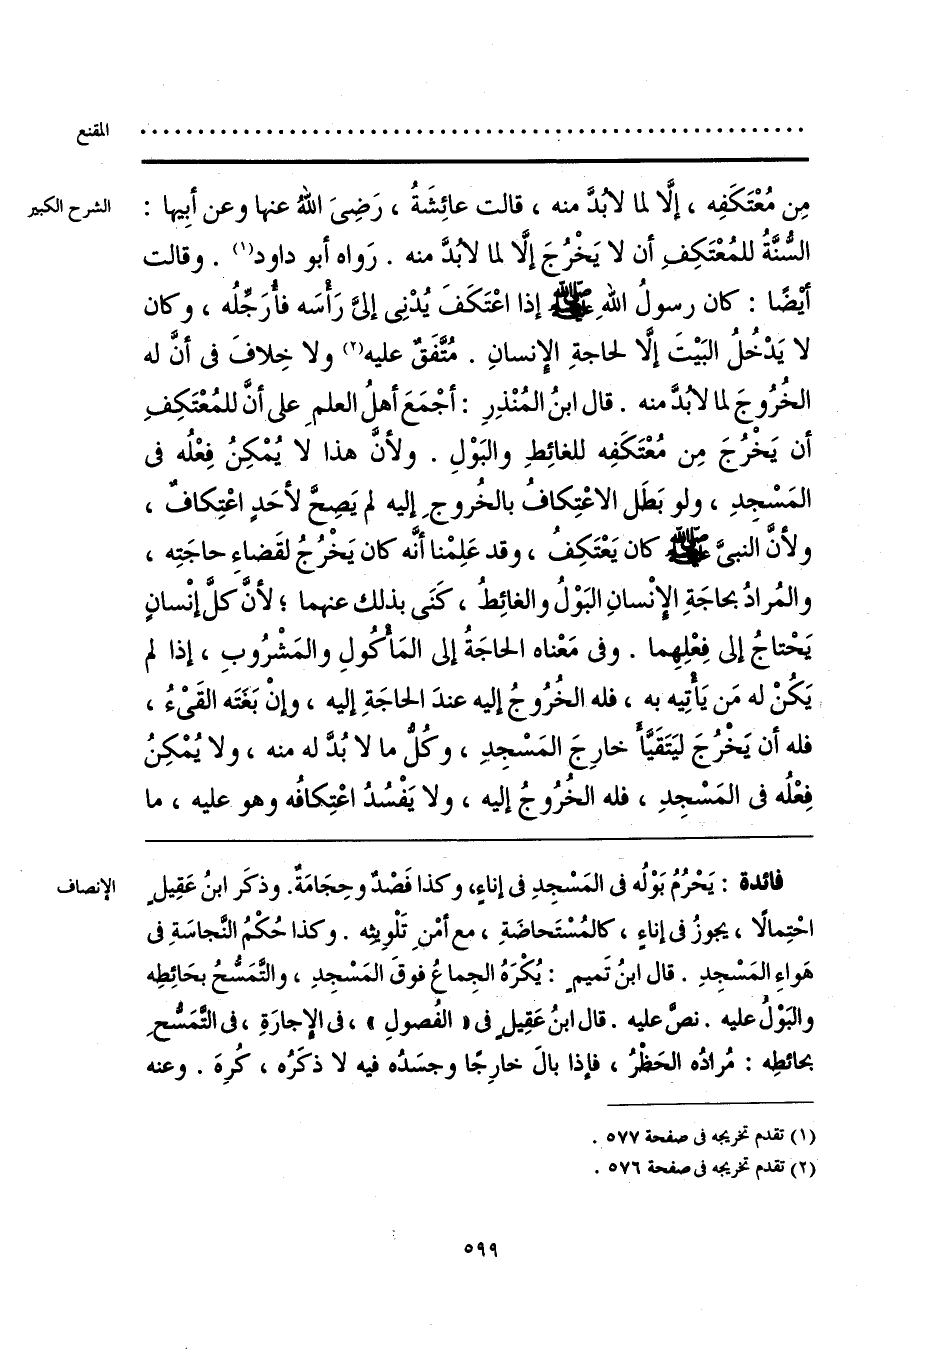 المقنع ........................................................
الشرح الكبير مِن مُعْتَكَفِه ، إلَّا لما لابُدَّ منه ، قالت عائِشَةُ ، رَضِىَ اللهُ عنها وعن أبِيها :
السُّنَّةُ للمُعْتَكِفِ أن لا يَخْرُجَ إلَّا لما لابُدَّ منه . رَواه أبو داود(١) . وقالت
أيْضًا : كان رسولُ اللهِ ﷺ إذا اعْتَكَفَ يُدْنِى إلىَّ رَأْسَه فأُرَجِّلُه ، وكان
لا يَدْخُلُ البَيْتَ إلَّا لحاجةِ الإِنسانِ . مُتَّفَقٌ عليه(٢) ولا خِلافَ فى أنَّ له
الخُرُوجَ لما لابُدَّ منه . قال ابنُ المُنْذِرِ : أجْمَعَ أهلُ العلمِ على أنَّ للمُعْتَكِفِ
أن يَخْرُجَ مِن مُعْتَكَفِه للغائِطِ والبَوْلِ . ولأنَّ هذا لا يُمْكِنُ فِعْلُه فى
المَسْجِدِ ، ولو بَطَل الاعْتِكافُ بالخُروجِ إليه لم يَصِحَّ لأحَدٍ اعْتِكافٌ ،
ولأنَّ النبىَّ ﷺ كان يَعْتَكِفُ ، وقد عَلِمْنا أنَّه كان يَخْرُجُ لقَضاءِ حاجَتِه ،
والمُرادُ بحاجَةِ الإِنْسانِ البَوْلُ والغائِطُ ، كَنَى بذلك عنهما ؛ لأنَّ كلَّ إنْسانٍ
يَحْتاجُ إلى فِعْلِهما . وفى مَعْناه الحاجَةُ إلى المَأْكُولِ والمَشْرُوبِ ، إذا لم
يَكُنْ له مَن يَأْتِيه به ، فله الخُرُوجُ إليه عندَ الحاجَةِ إليه ، وإنْ بَغَتَه القَىْءُ ،
فله أن يَخْرُجَ ليَتَقَيَّأَ خارِجَ المَسْجِدِ ، وكُلُّ ما لا بُدَّ له منه ، ولا يُمْكِنُ
فِعْلُه فى المَسْجِدِ ، فله الخُرُوجُ إليه ، ولا يَفْسُدُ اعْتِكافُه وهو عليه ، ما
الإنصاف فائدة : يَحْرُمُ بَوْلُه فى المَسْجِدِ فى إناءٍ، وكذا فَصْدٌ وحِجَامَةٌ. وذكَر ابنُ عَقِيلٍ
احْتِمالًا ، يجوزُ فى إناءٍ ، كالمُسْتَحاضَةِ ، مع أمْنِ تَلْوِيثِه . وكذا حُكْمُ النَّجاسَةِ فى
هَواءِ المَسْجِدِ . قال ابنُ تَميمٍ : يُكْرَهُ الجِماعُ فوقَ المَسْجِدِ ، والتَّمَسُّحُ بحَائطِه
والبَوْلُ عليه . نصَّ عليه . قال ابنُ عَقِيلٍ فى « الفُصولِ » ، فى الإِجارَةِ ، فى التَّمَسُّحِ
بحائطِه : مُرادُه الحَظْرُ ، فإذا بالَ خارِجًا وجسَدُه فيه لا ذكَرُه ، كُرِهَ . وعنه
(١) تقدم تخريجه فى صفحة ٥٧٧ .
(٢) تقدم تخريجه فى صفحة ٥٧٦ .
٥٩٩